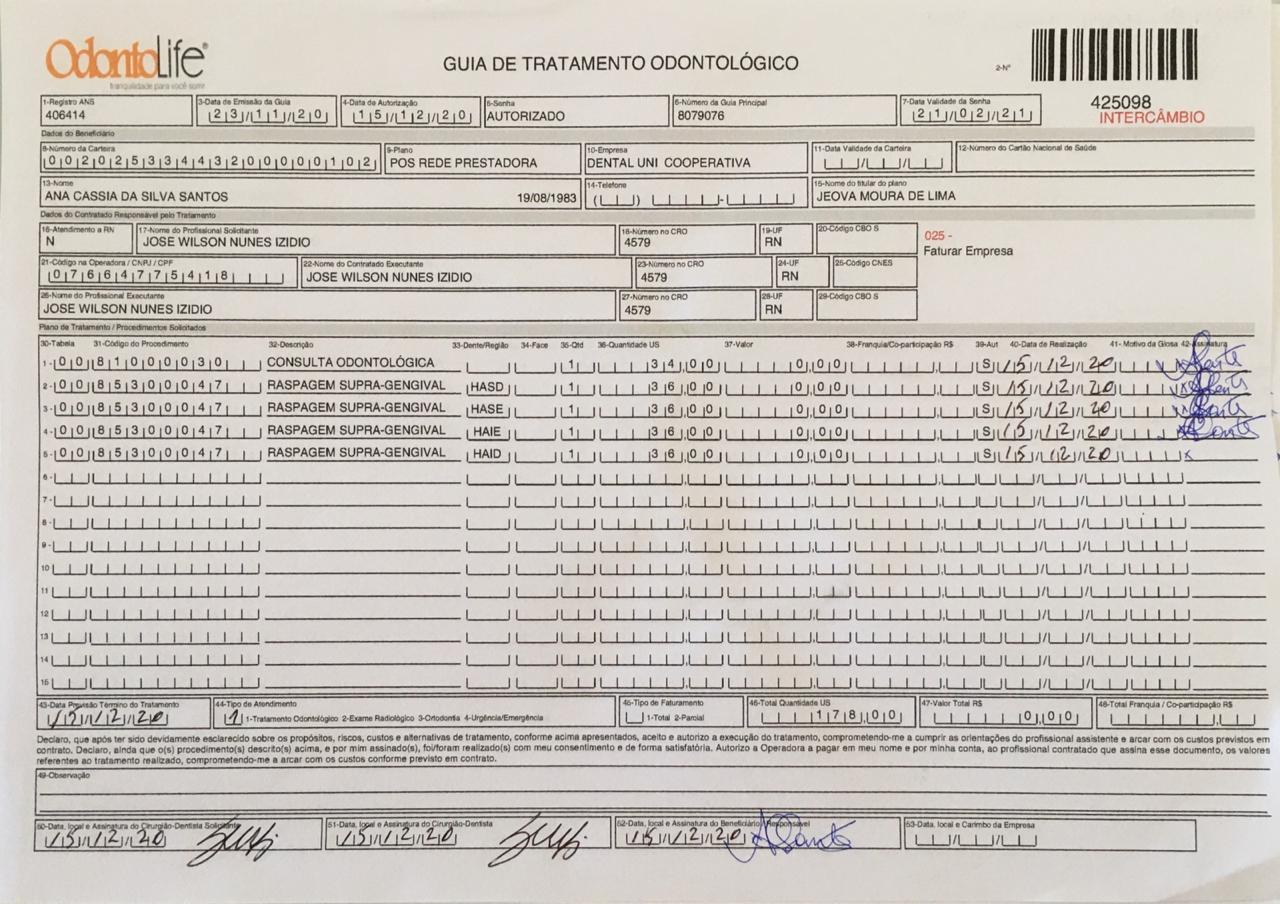 OdontoLife®
tranquilidade para você sorrir
GUIA DE TRATAMENTO ODONTOLÓGICO
2-Nº
425098
INTERCÂMBIO
1-Registro ANS 3-Data de Emissão da Guia 4-Data de Autorização 5-Senha 6-Número da Guia Principal 7-Data Validade da Senha
406414 23/11/20 15/12/20 AUTORIZADO 8079076 21/02/21
Dados do Beneficiário
8-Número da Carteira 9-Plano 10-Empresa 11-Data Validade da Carteira 12-Número do Cartão Nacional de Saúde
00202533443200000102 POS REDE PRESTADORA DENTAL UNI COOPERATIVA
13-Nome 14-Telefone 15-Nome do titular do plano
ANA CASSIA DA SILVA SANTOS 19/08/1983 JEOVA MOURA DE LIMA
Dados do Contratado Responsável pelo Tratamento
16-Atendimento a RN 17-Nome do Profissional Solicitante 18-Número no CRO 19-UF 20-Código CBO S
N JOSE WILSON NUNES IZIDIO 4579 RN
025 -
Faturar Empresa
21-Código na Operadora / CNPJ / CPF 22-Nome do Contratado Executante 23-Número no CRO 24-UF 25-Código CNES
07664775418 JOSE WILSON NUNES IZIDIO 4579 RN
26-Nome do Profissional Executante 27-Número no CRO 28-UF 29-Código CBO S
JOSE WILSON NUNES IZIDIO 4579 RN
Plano de Tratamento / Procedimentos Solicitados
30-Tabela 31-Código do Procedimento 32-Descrição 33-Dente/Região 34-Face 35-Qtd 36-Quantidade US 37-Valor 38-Franquia/Co-participação R$ 39-Aut 40-Data de Realização 41- Motivo da Glosa 42-Assinatura
1- 00 81000030 CONSULTA ODONTOLÓGICA 1 34,00 0,00 S 15/12/20
2- 00 85300047 RASPAGEM SUPRA-GENGIVAL HASD 1 36,00 0,00 S 15/12/20
3- 00 85300047 RASPAGEM SUPRA-GENGIVAL HASE 1 36,00 0,00 S 15/12/20
4- 00 85300047 RASPAGEM SUPRA-GENGIVAL HAIE 1 36,00 0,00 S 15/12/20
5- 00 85300047 RASPAGEM SUPRA-GENGIVAL HAID 1 36,00 0,00 S 15/12/20 x
6-
7-
8-
9-
10
11
12
13
14
15
43-Data Previsão Término do Tratamento 44-Tipo de Atendimento 45-Tipo de Faturamento 46-Total Quantidade US 47-Valor Total R$ 48-Total Franquia / Co-participação R$
15/12/20 1 1-Tratamento Odontológico 2-Exame Radiológico 3-Ortodontia 4-Urgência/Emergência 1-Total 2-Parcial 178,00 0,00
Declaro, que após ter sido devidamente esclarecido sobre os propósitos, riscos, custos e alternativas de tratamento, conforme acima apresentados, aceito e autorizo a execução do tratamento, comprometendo-me a cumprir as orientações do profissional assistente e arcar com os custos previstos em
contrato. Declaro, ainda que o(s) procedimento(s) descrito(s) acima, e por mim assinado(s), foi/foram realizado(s) com meu consentimento e de forma satisfatória. Autorizo a Operadora a pagar em meu nome e por minha conta, ao profissional contratado que assina esse documento, os valores
referentes ao tratamento realizado, comprometendo-me a arcar com os custos conforme previsto em contrato.
49-Observação
50-Data, local e Assinatura do Cirurgião-Dentista Solicitante 51-Data, local e Assinatura do Cirurgião-Dentista 52-Data, local e Assinatura do Beneficiário / Responsável 53-Data, local e Carimbo da Empresa
15/12/20 15/12/20 15/12/20